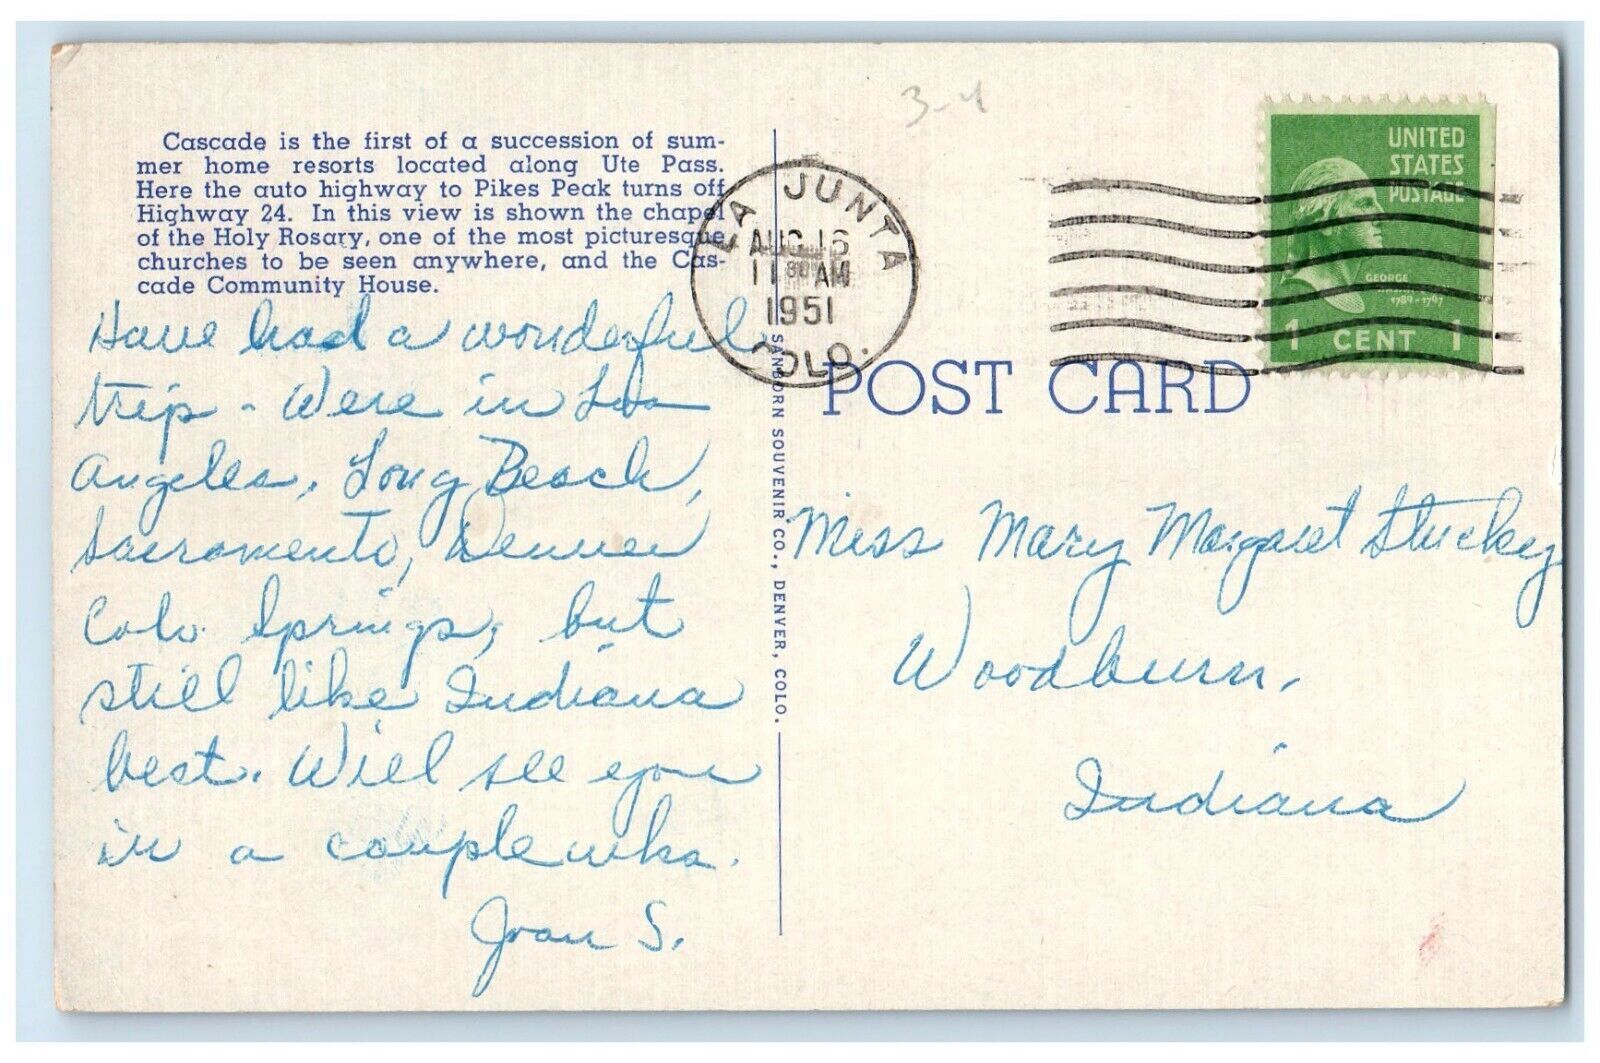 Cascade is the first of a succession of sum-
mer home resorts located along Ute Pass.
Here the auto highway to Pikes Peak turns off
Highway 24. In this view is shown the chapel
of the Holy Rosary, one of the most picturesque
churches to be seen anywhere, and the Cas-
cade Community House.
Have had a wonderful
trip - Were in Los
Angeles, Long Beach,
Sacramento, Denver
Colo. Springs, but
still like Indiana
best. Will see you
in a couple wks.
Joan S.
SANBORN SOUVENIR CO., DENVER, COLO.
3-4
LA JUNTA
AUG 16
11 AM
1951
COLO.
UNITED
STATES
POSTAGE
GEORGE
1789-1797
1 CENT 1
POST CARD
Miss Mary Margaret Stuckey
Woodburn,
Indiana